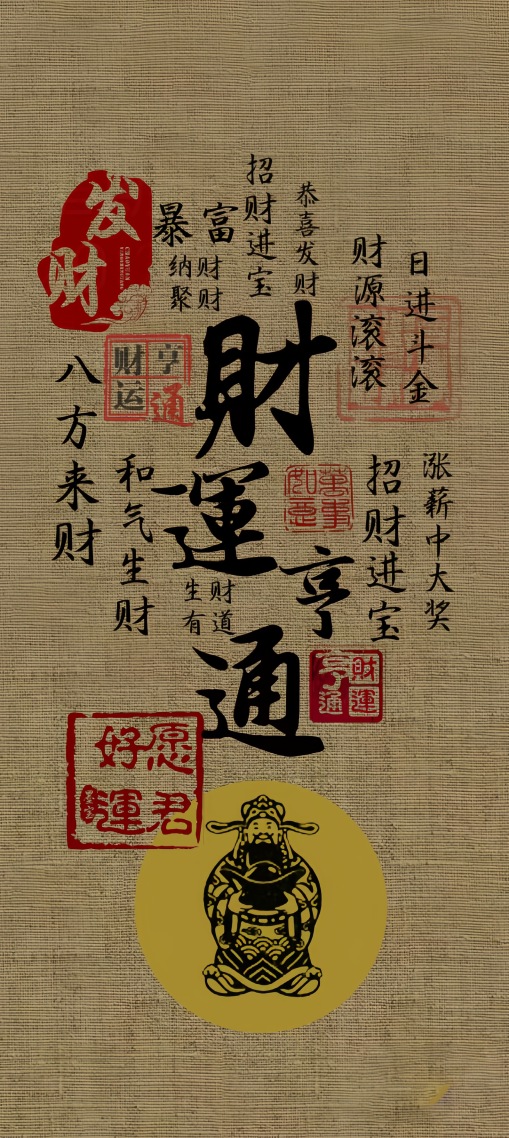 发财
暴富
纳财
聚财
招财进宝
恭喜发财
财源滚滚
日进斗金
财运亨通
八方来财
和气生财
財運亨通
萬事如意
招财进宝
涨薪中大奖
生财有道
財運亨通
愿君好運